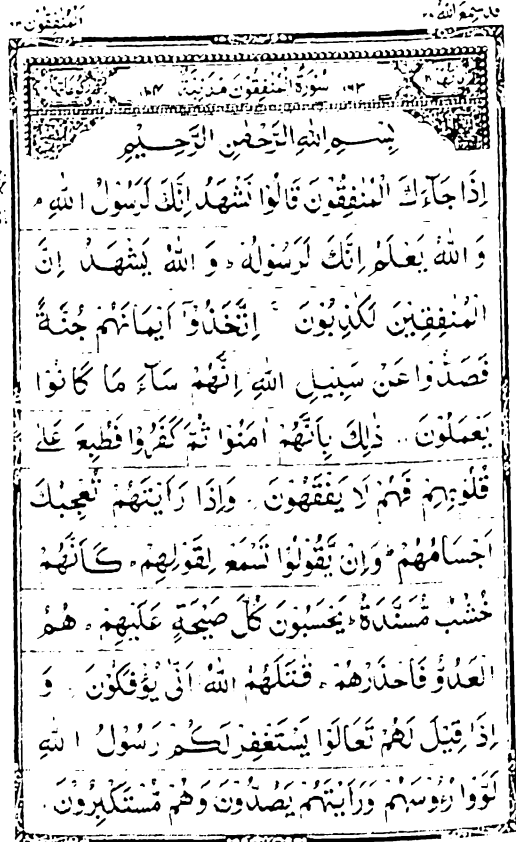 قد سمع الله ٢٨
المنفقون ٦٣
سُوْرَةُ الْمُنٰفِقُوْنَ مَدَنِيَّةٌ
بِسْمِ اللهِ الرَّحْمٰنِ الرَّحِيْمِ
اِذَا جَآءَكَ الْمُنٰفِقُوْنَ قَالُوْا نَشْهَدُ اِنَّكَ لَرَسُوْلُ اللهِ م
وَ اللهُ يَعْلَمُ اِنَّكَ لَرَسُوْلُهٗ ؕ وَ اللهُ يَشْهَدُ اِنَّ
الْمُنٰفِقِيْنَ لَكٰذِبُوْنَ اِتَّخَذُوْۤا اَيْمَانَهُمْ جُنَّةً
فَصَدُّوْا عَنْ سَبِيْلِ اللهِ اِنَّهُمْ سَآءَ مَا كَانُوْا
يَعْمَلُوْنَ ذٰلِكَ بِاَنَّهُمْ اٰمَنُوْا ثُمَّ كَفَرُوْا فَطُبِعَ عَلٰى
قُلُوْبِهِمْ فَهُمْ لَا يَفْقَهُوْنَ وَاِذَا رَاَيْتَهُمْ تُعْجِبُكَ
اَجْسَامُهُمْ ؕ وَاِنْ يَّقُوْلُوْا تَسْمَعْ لِقَوْلِهِمْ ؕ كَاَنَّهُمْ
خُشُبٌ مُّسَنَّدَةٌ ؕ يَحْسَبُوْنَ كُلَّ صَيْحَةٍ عَلَيْهِمْ ؕ هُمُ
الْعَدُوُّ فَاحْذَرْهُمْ ؕ قٰتَلَهُمُ اللهُ اَنّٰى يُؤْفَكُوْنَ وَ
اِذَا قِيْلَ لَهُمْ تَعَالَوْا يَسْتَغْفِرْ لَكُمْ رَسُوْلُ اللهِ
لَوَّوْا رُءُوْسَهُمْ وَرَاَيْتَهُمْ يَصُدُّوْنَ وَهُمْ مُّسْتَكْبِرُوْنَ